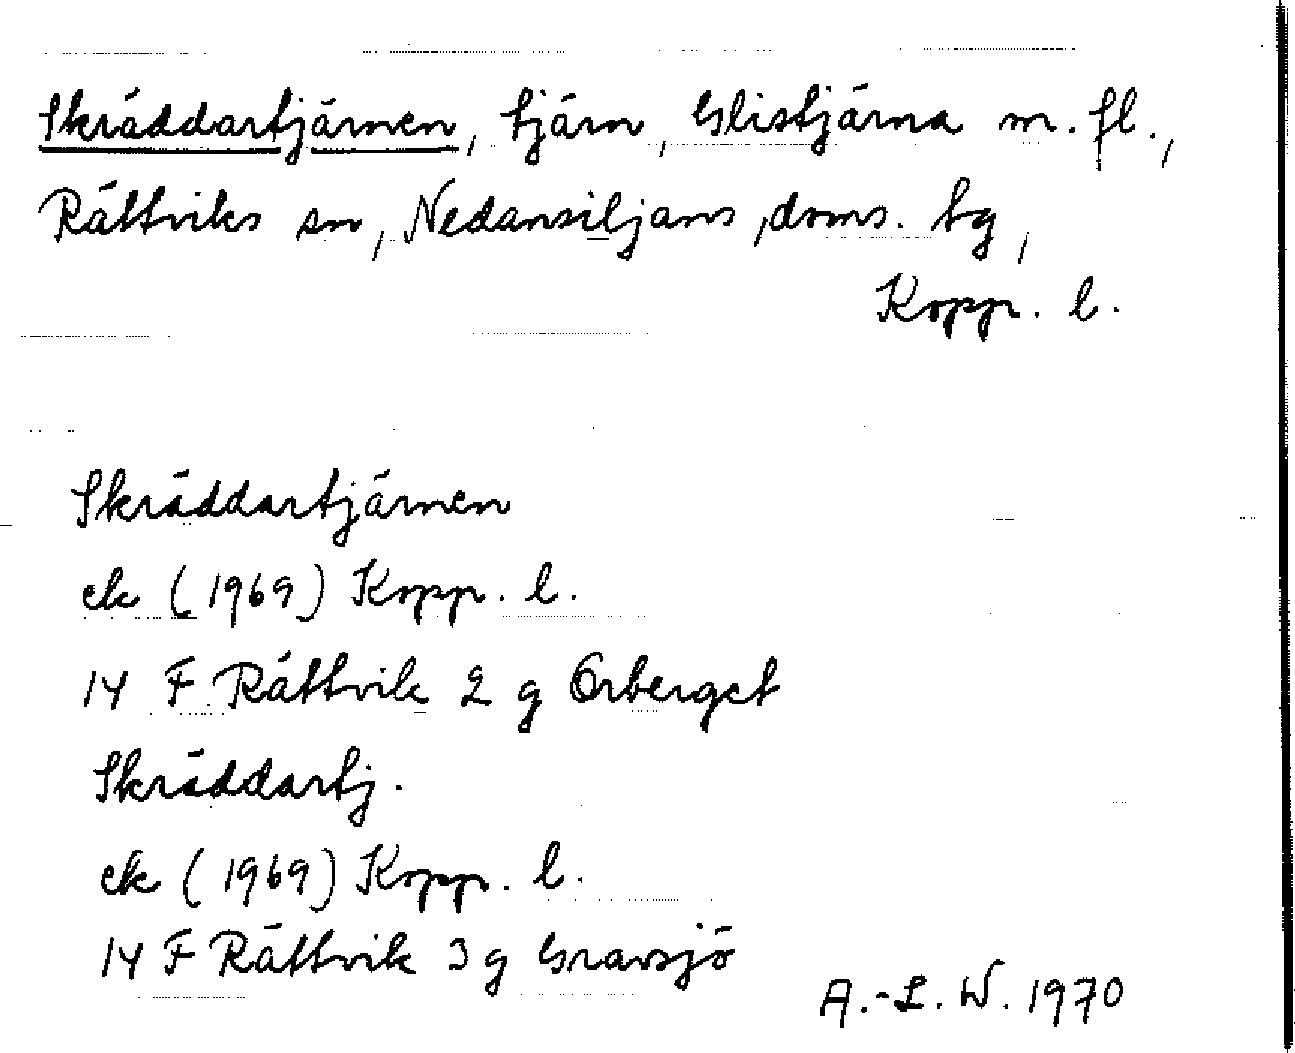 Skräddartjärnen, tjärn, Glistjärna m. fl.,
Rättviks sn, Nedansiljans doms. tg,
Kopp. l.
Skräddartjärnen
ek (1969) Kopp. l.
14 F Rättvik 2 g Orberget
Skräddartj.
ek (1969) Kopp. l.
14 F Rättvik 3 g Gravsjö
A.-L. W. 1970